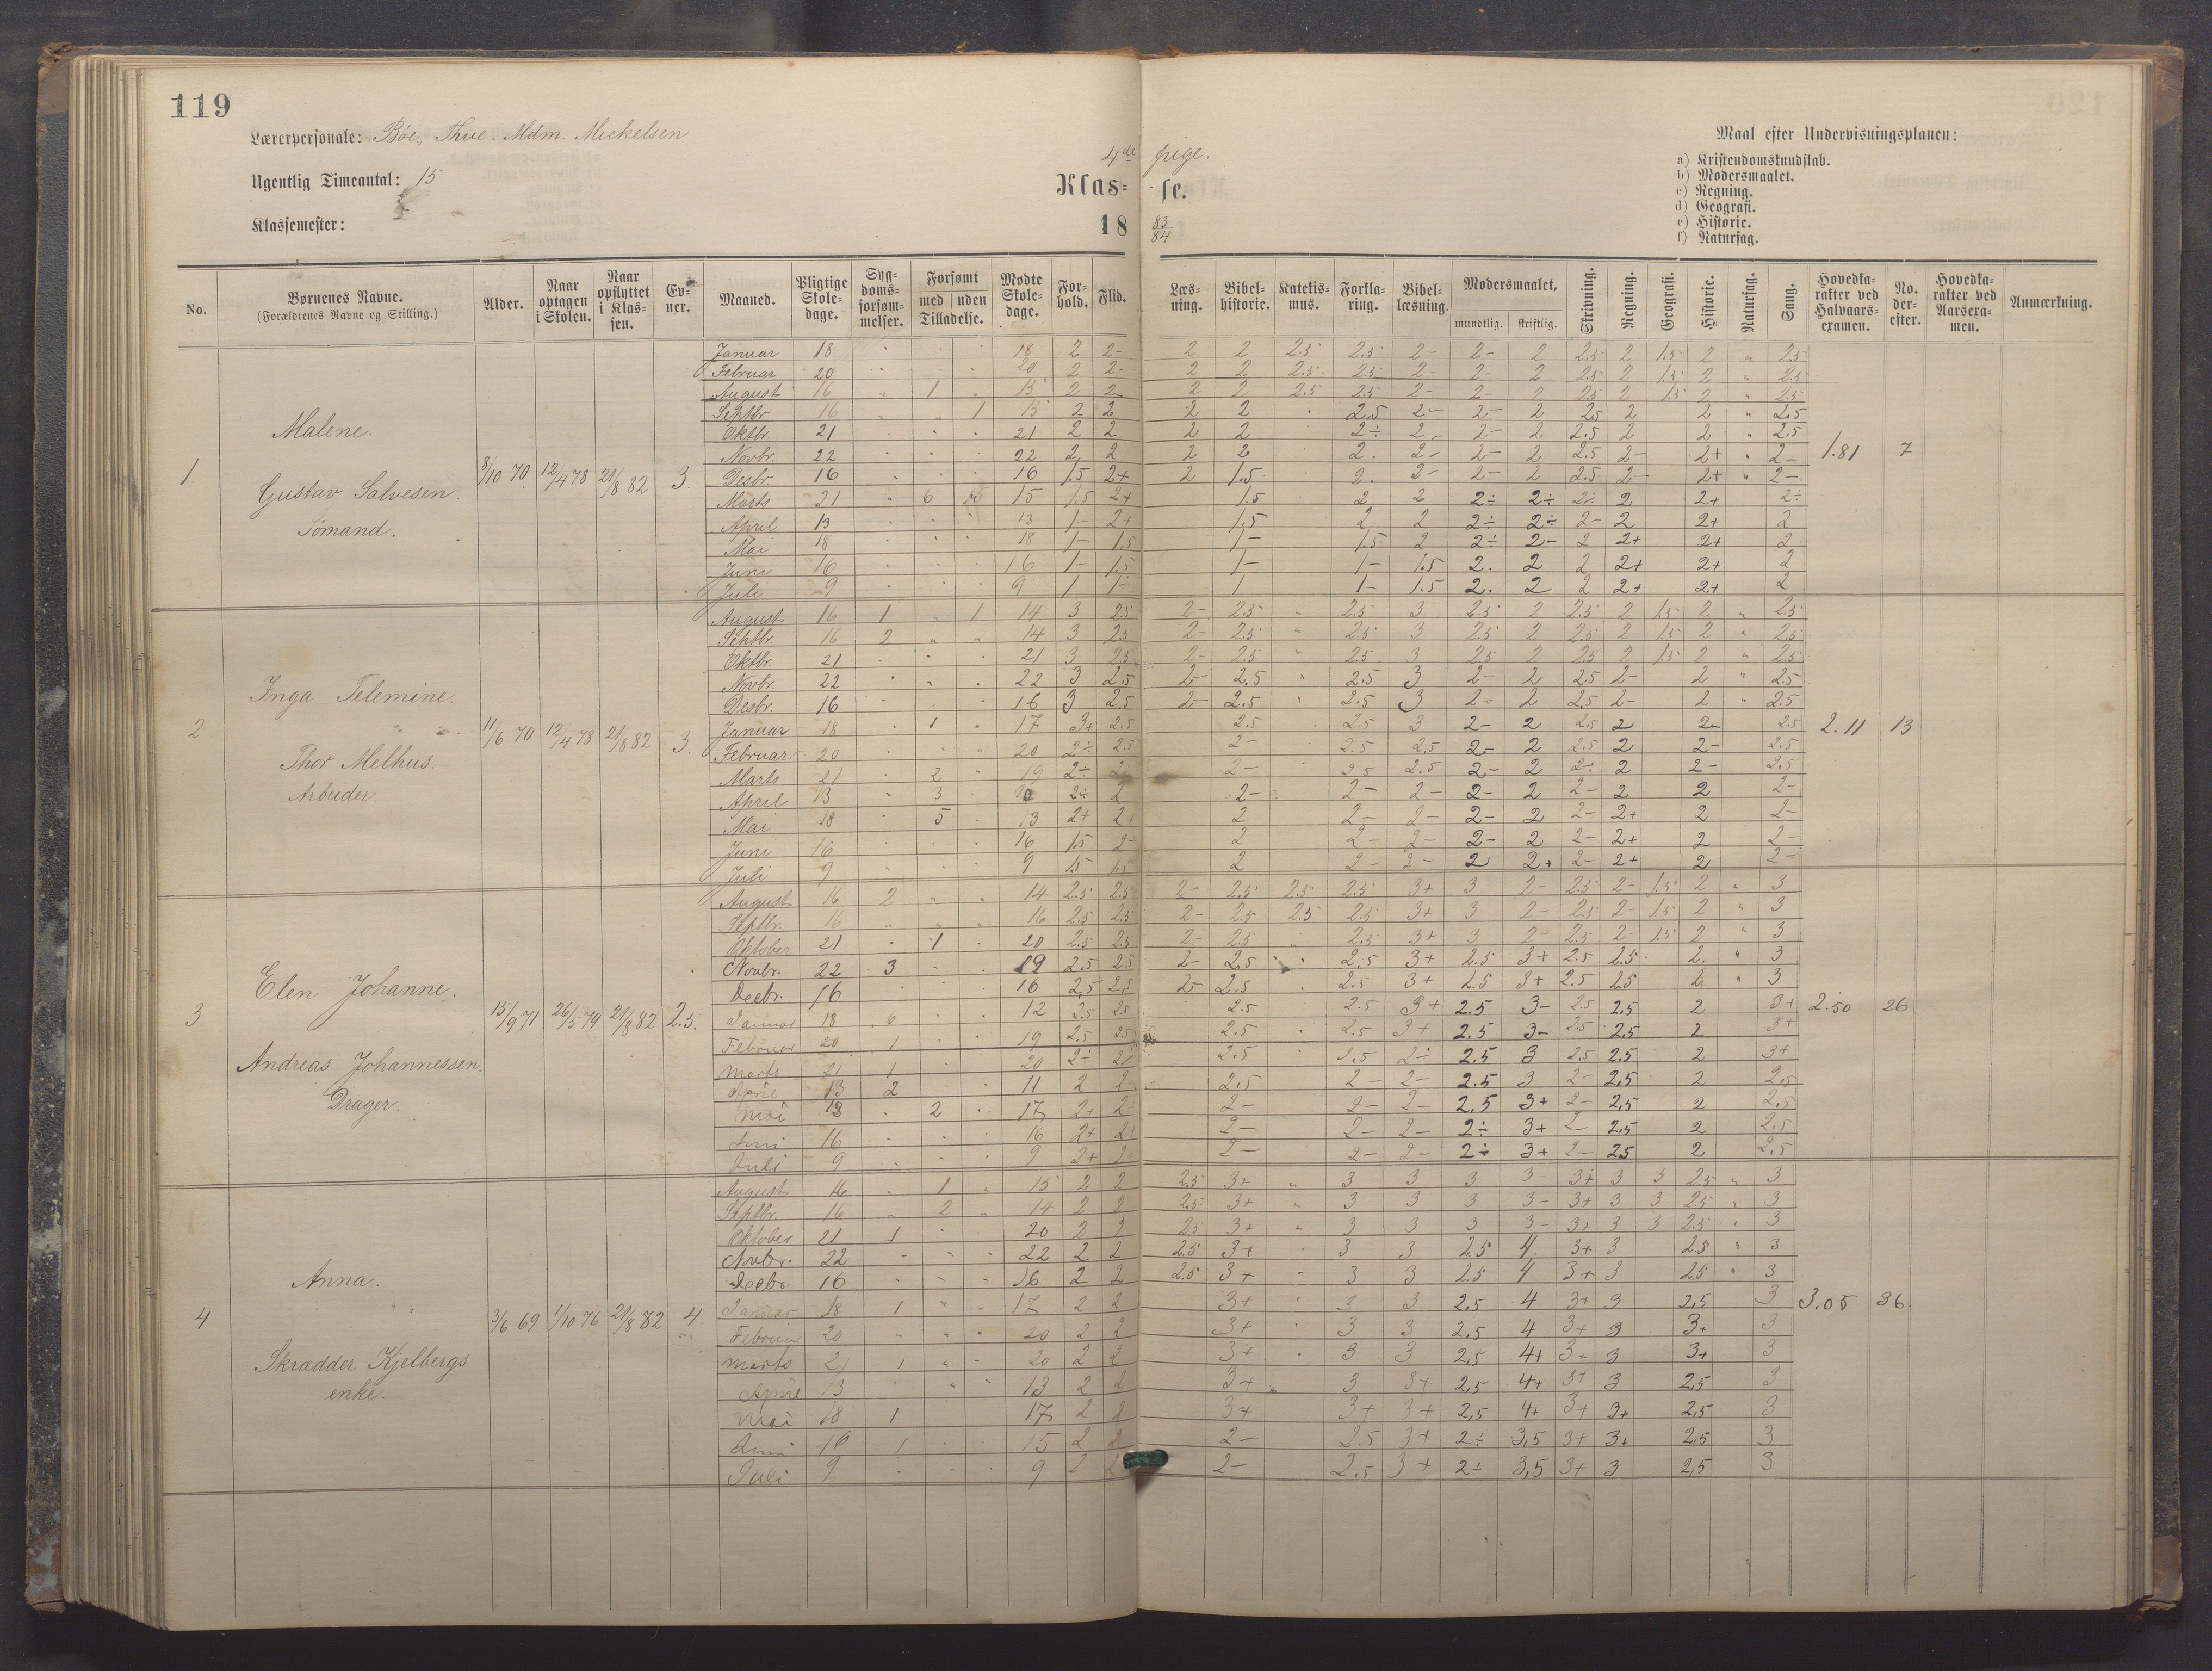 119
Lærerpersonale: Böe, Thue. Mdm. Mickelsen
Ugentlig Timeantal: 15
Klassemester:
4de pige.
Klas- se.
18 83/84
Maal efter Undervisningsplanen:
a) Kristendomskundskab.
b) Modersmaalet.
c) Regning.
d) Geografi.
e) Historie.
f) Naturfag.
No. Børnenes Navne. (Forældrenes Navne og Stilling.) Alder. Naar optagen i Skolen. Naar opflyttet i Klassen. Evner. Maaned. Pligtige Skoledage. Sygdomsforsømmelser. Forsømt med uden Tilladelse. Mødte Skoledage. Forhold. Flid. Læsning. Bibelhistorie. Katekismus. Forklaring. Bibellæsning. Modersmaalet, mundtlig. skriftlig. Skrivning. Regning. Geografi. Historie. Naturfag. Sang. Hovedkarakter ved Halvaarsexamen. No. derefter. Hovedkarakter ved Aarsexamen. Anmærkning.
1. Malene. Gustav Salvesen. Sømand. 8/10 70 12/4 78 21/8 82 3. 1.81 7
Januar 18 18 2 2- 2 2 2.5 2.5 2- 2- 2 2.5 2 1.5 2 " 2.5
Februar 20 20 2 2- 2 2 2.5 2.5 2- 2- 2 2.5 2 1.5 2 " 2.5
August 16 " 1 " 15 2 2- 2 2 2.5 2.5 2- 2- 2 2.5 2 1.5 2 " 2.5
Septbr 16 " " 1 15 2 2 2 2 2.5 2- 2- 2 2.5 2 2 " 2.5
Oktbr. 21 21 2 2 2 2 2÷ 2- 2- 2 2.5 2 2 " 2.5
Novbr. 22 22 2 2 2 2 2. 2- 2- 2 2.5 2- 2+ " 2-
Desbr. 16 16 1.5 2+ 2 1.5 2. 2- 2- 2 2.5 2- 2+ " 2-
Marts 21 6 15 1.5 2+ 1.5 2 2 2÷ 2÷ 2÷ 2 2+ 2÷
April 13 13 1- 2+ 1.5 2 2 2÷ 2÷ 2- 2 2+ 2
Mai 18 18 1- 1.5 1- 1.5 2 2÷ 2- 2 2+ 2+ 2
Juni 16 16 1- 1.5 1- 1- 1.5 2. 2 2 2+ 2+ 2
Juli 9 9 1 1÷ 1 1- 1.5 2. 2 2 2+ 2+ 2
2 Inga Telemine. Thor Melhus. Arbeider. 11/6 70 12/4 78 21/8 82 3. 2.11 13
August 16 1 " 1 14 3 2.5 2- 2.5 " 2.5 3 2.5 2 2.5 2 1.5 2 " 2.5
Septbr. 16 2 " " 14 3 2.5 2- 2.5 " 2.5 3 2.5 2 2.5 2 1.5 2 " 2.5
Oktbr. 21 21 3 2.5 2- 2.5 " 2.5 3 2.5 2 2.5 2 1.5 2 " 2.5
Novbr. 22 22 3 2.5 2- 2.5 " 2.5 3 2- 2 2.5 2- 2 " 2.5
Desbr. 16 16 3 2.5 2- 2.5 " 2.5 3 2- 2 2.5 2- 2 " 2.5
Januar 18 1 " 17 3+ 2.5 2.5 2.5 3 2- 2 2.5 2 2- 2.5
Februar 20 20 2÷ 2.5 2- 2.5 2.5 2- 2 2.5 2 2- 2.5
Marts 21 2 " 19 2÷ 2÷ 2- 2.5 2.5 2- 2 2÷ 2 2- 2.5
April 13 3 10 2÷ 2 2- 2- 2- 2- 2 2- 2 2 2-
Mai 18 5 13 2+ 2+ 2 2- 2- 2- 2 2- 2+ 2 2-
Juni 16 16 1.5 2+ 2 2- 2- 2- 2 2- 2+ 2 2-
Juli 9 9 1.5 1.5 2 2- 2- 2 2+ 2- 2+ 2 2-
3. Elen Johanne. Andreas Johannessen. Drager. 15/9 71 26/5 79 21/8 82 2.5. 2.50 26
August 16 2 " " 14 2.5 2.5 2- 2.5 2.5 2.5 3+ 3 2- 2.5 2- 1.5 2 " 3
Septbr. 16 " " " 16 2.5 2.5 2- 2.5 2.5 2.5 3+ 3 2- 2.5 2- 1.5 2 " 3
Oktober 21 1 20 2.5 2.5 2- 2.5 2.5 3+ 3 2- 2.5 2- 1.5 2 " 3
Novbr. 22 3 19 2.5 2.5 2- 2.5 2.5 3+ 2.5 3+ 2.5 2.5 2. " 3
Decbr. 16 16 2.5 2.5 2- 2.5 2.5 3+ 2.5 3+ 2.5 2.5 2 " 3
Januar 18 6 12 2.5 2.5 2.5 2.5 3+ 2.5 3- 2.5 2.5 2 3+
Februar 20 1 19 2.5 2.5 2.5 2.5 3+ 2.5 3- 2.5 2.5 2 3+
Marts 21 1 20 2÷ 2- 2.5 2.5 2÷ 2.5 3 2.5 2.5 2 3+
April 13 2 11 2 2 2.5 2- 2- 2.5 3 2- 2.5 2 2.5
Mai 18 2 17 2+ 2- 2- 2- 2- 2.5 3+ 2- 2.5 2 2.5
Juni 16 16 2+ 2+ 2- 2- 2- 2÷ 3+ 2- 2.5 2 2.5
Juli 9 9 2+ 2+ 2- 2- 2- 2÷ 3+ 2- 2.5 2 2.5
4 Anna. Skrædder Kjelbergs enke. 3/6 69 1/10 76 21/8 82 4. 3.05 36.
August 16 1 " 15 2 2 2.5 3+ " 3 3 3 3- 3+ 3 3 2.5 " 3
Septbr. 16 " 2 " 14 2 2 2.5 3+ " 3 3 3 3- 3+ 3 3 2.5 " 3
Oktober 21 1 20 2 2 2.5 3+ " 3 3 3 3- 3+ 3 3 2.5 " 3
Novbr. 22 22 2 2 2.5 3+ 3 3 2.5 4 3+ 3 2.5 " 3
Decbr. 16 16 2 2 2.5 3+ 3 3 2.5 4 3+ 3 2.5 " 3
Januar 18 1 " 17 2 2 3+ 3 3 2.5 4 3+ 3 2.5 3
Februar 20 " " " 20 2 2 3+ 3 3 2.5 4 3+ 3 3+ 3
Marts 21 1 " 20 2 2 3+ 3 3 2.5 4+ 3+ 3 3+ 3
April 13 13 2 2 3+ 3 3+ 2.5 4+ 3+ 3 2.5 3
Mai 18 1 17 2 2 3+ 3+ 3+ 2.5 4+ 3+ 3+ 2.5 3
Juni 16 1 15 2 2 2- 2.5 3+ 2÷ 3.5 3+ 3+ 2.5 3
Juli 9 9 2 2 2- 2.5 3+ 2÷ 3.5 3+ 3 2.5 3